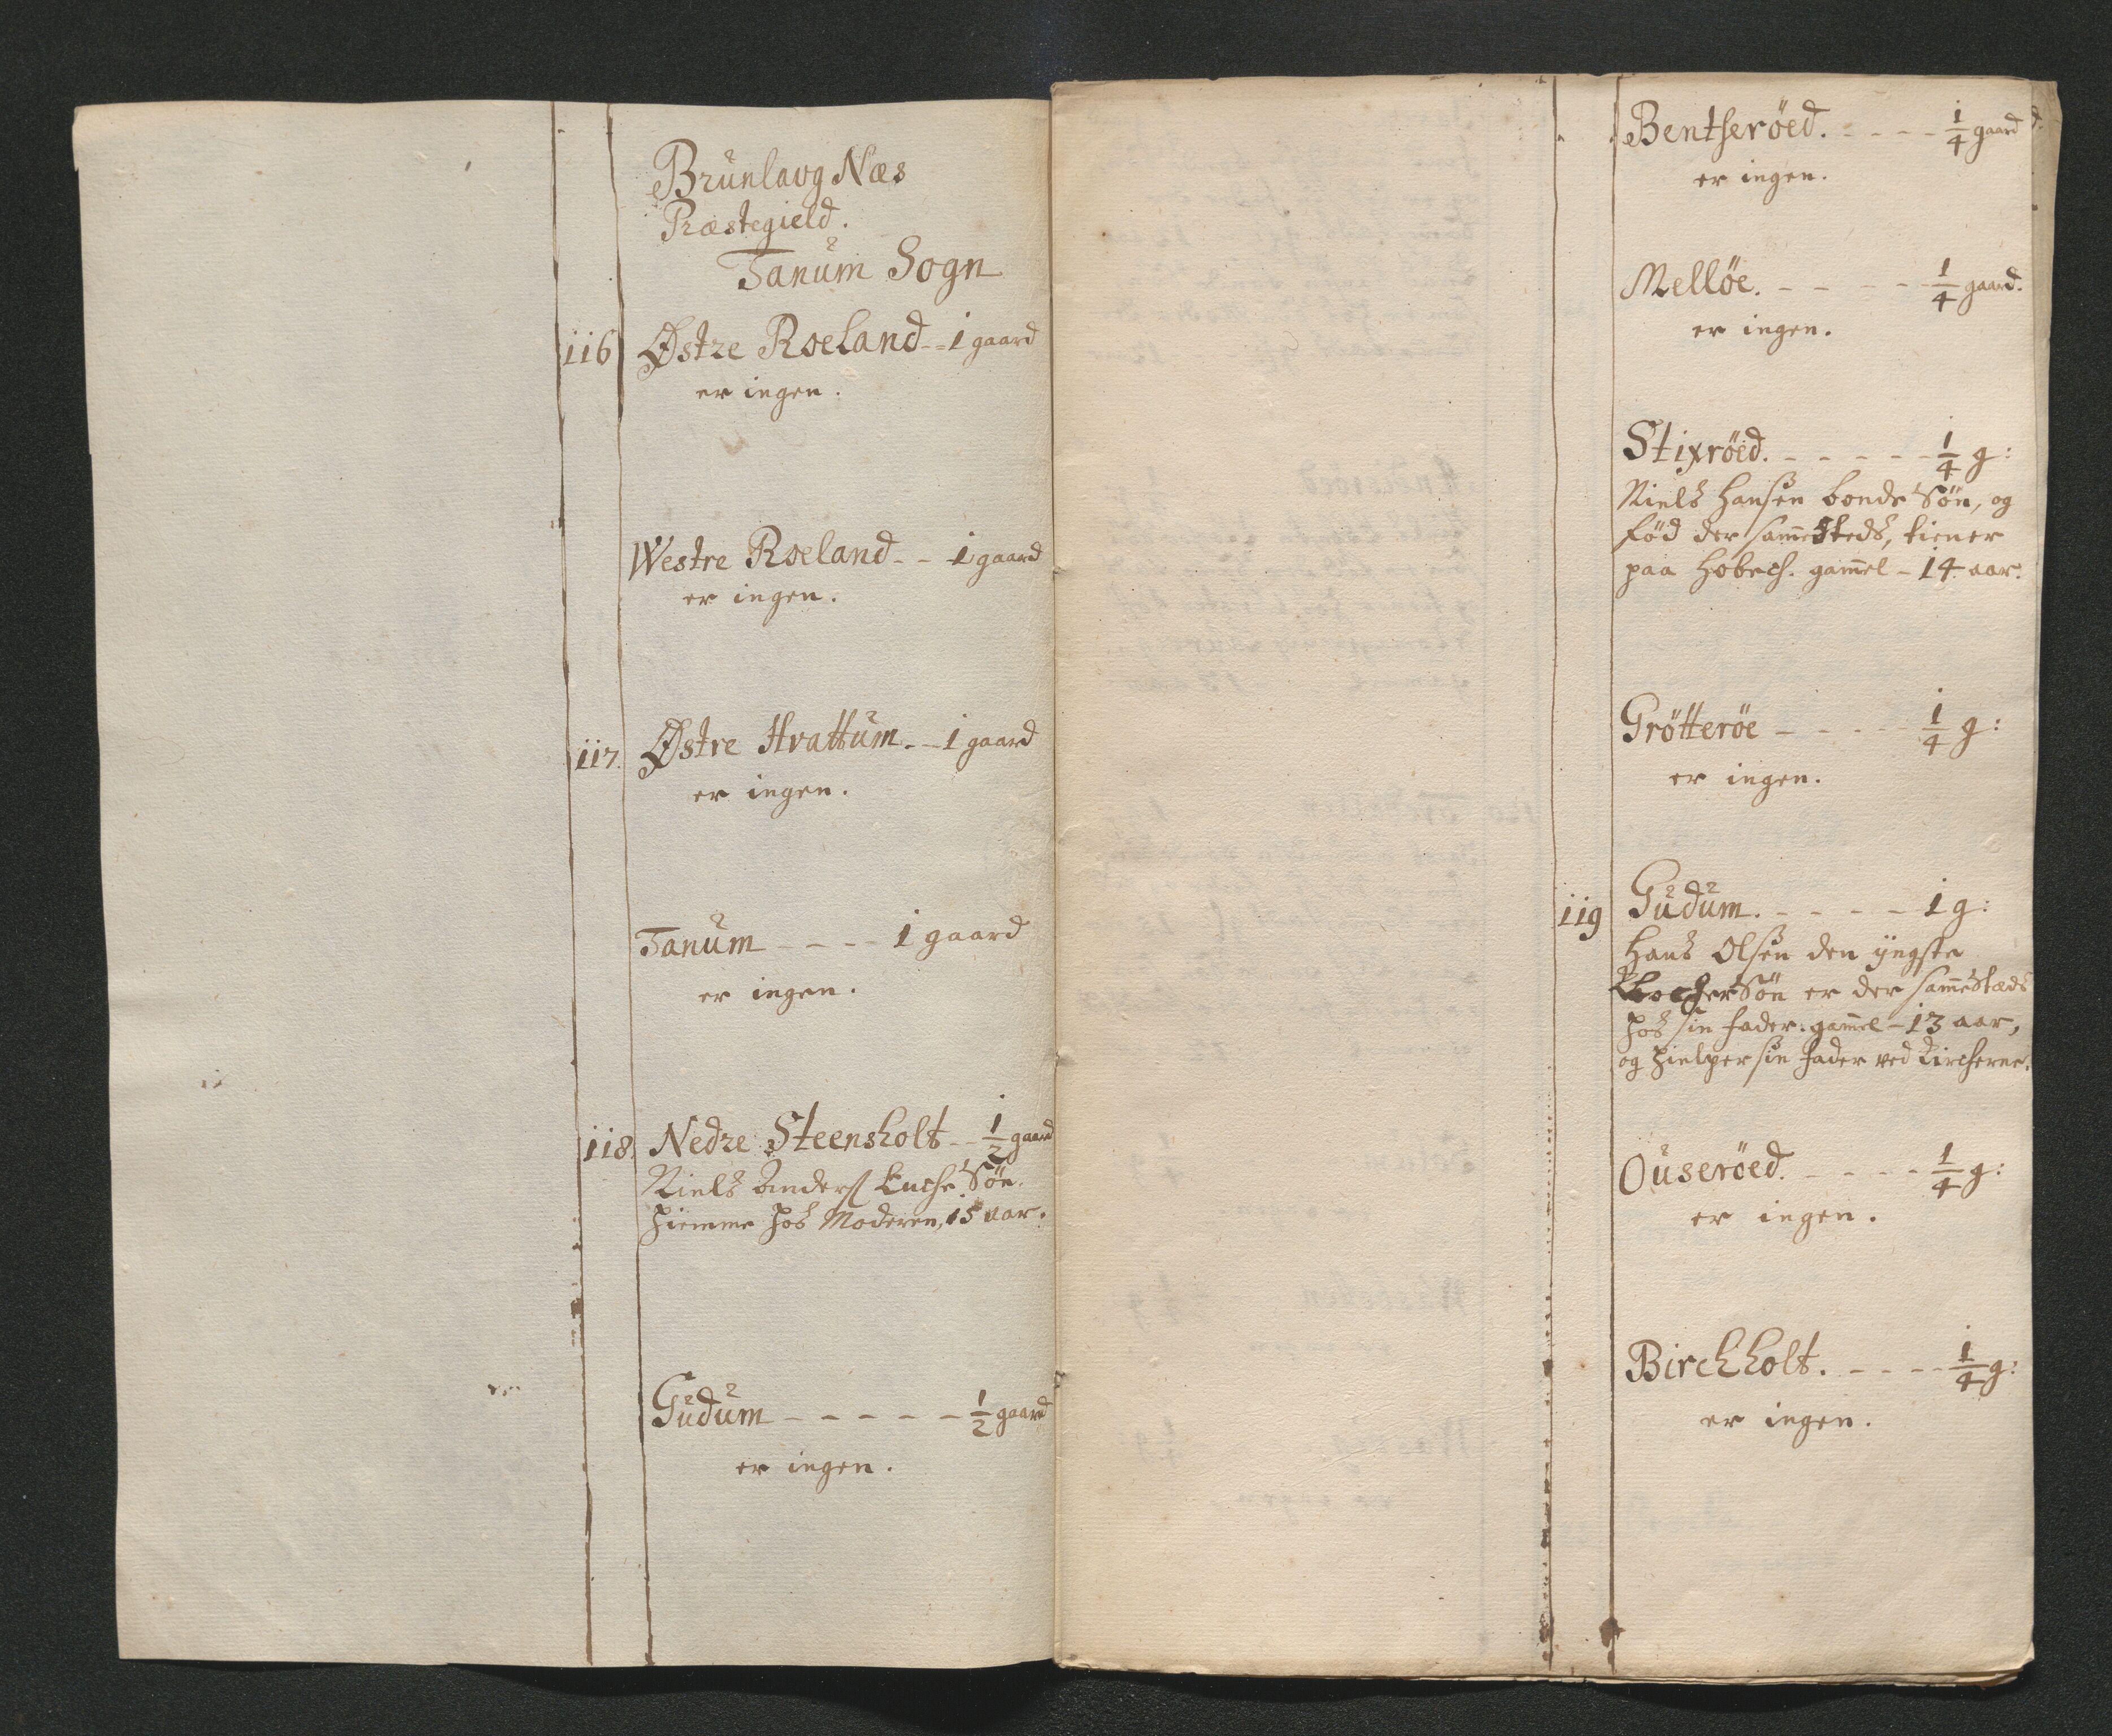 Brünlavg Næs
Præstegield.
Tanüm Sogn
116 Østre Roeland - - 1 gaard
er ingen.
Westre Roeland - - 1 gaard
er ingen.
117. Østre Hvattüm - - 1 gaard
er ingen.
Tanüm - - - - 1 gaard
er ingen.
118. Nedre Steensholt - - 1/2 gaard
Niels Anders Enche Søn.
hiemme hos Moderen, 15 aar.
Güdüm - - - - - 1/2 gaard
er ingen.
Bentseröed. - - - - 1/4 gaard
er ingen.
Mellöe. - - - - - 1/4 gaard.
er ingen.
Stixröed. - - - - - 1/4 g:
Niels Hansen bonde Søn, og
fød der sam̅esteds, tiener
paa Hobech. gam̅el - 14 aar.
Grötteröe - - - - - 1/4 g:
er ingen.
119 Güdüm. - - - - - 1 g:
Hans Olsen den yngste
Søn er der sam̅estæds
hos sin fader. gam̅el - 13 aar,
og hielper sin fader ved Kircherne.
Oüseröed. - - - - 1/4 g:
er ingen.
Birchholt. - - - - 1/4 g:
er ingen.